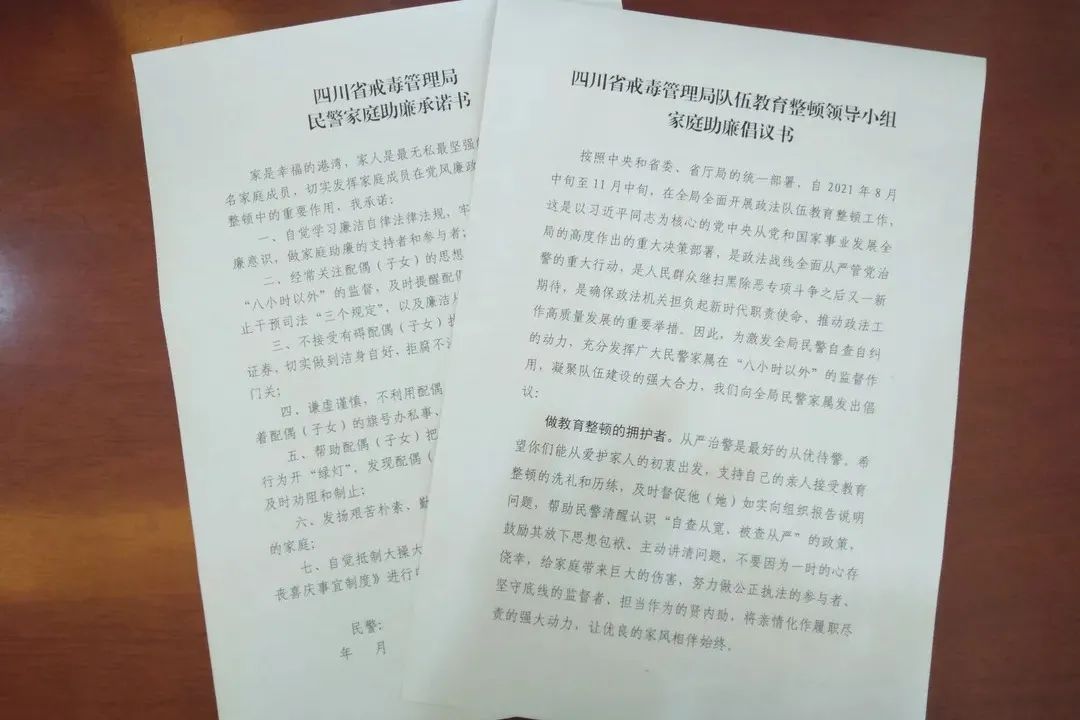 四川省戒毒管理局
民警家庭助廉承诺书
家是幸福的港湾，家人是最无私最坚强
名家庭成员，切实发挥家庭成员在党风廉政
整顿中的重要作用，我承诺：
一、自觉学习廉洁自律法律法规，牢
廉意识，做家庭助廉的支持者和参与者；
二、经常关注配偶（子女）的思想
“八小时以外”的监督，及时提醒配偶
止干预司法“三个规定”，以及廉洁从
三、不接受有碍配偶（子女）执
证券，切实做到洁身自好，拒腐不
门关；
四、谦虚谨慎，不利用配偶
着配偶（子女）的旗号办私事、
五、帮助配偶（子女）把
行为开“绿灯”，发现配偶（
及时劝阻和制止；
六、发扬艰苦朴素、勤
的家庭；
七、自觉抵制大操大
丧喜庆事宜制度》进行
民警：
年 月
四川省戒毒管理局队伍教育整顿领导小组
家庭助廉倡议书
按照中央和省委、省厅局的统一部署，自 2021 年 8 月
中旬至 11 月中旬，在全局全面开展政法队伍教育整顿工作，
这是以习近平同志为核心的党中央从党和国家事业发展全
局的高度作出的重大决策部署，是政法战线全面从严管党治
警的重大行动，是人民群众继扫黑除恶专项斗争之后又一新
期待，是确保政法机关担负起新时代职责使命、推动政法工
作高质量发展的重要举措。因此，为激发全局民警自查自纠
的动力，充分发挥广大民警家属在“八小时以外”的监督作
用，凝聚队伍建设的强大合力，我们向全局民警家属发出倡
议：
做教育整顿的拥护者。从严治警是最好的从优待警。希
望你们能从爱护家人的初衷出发，支持自己的亲人接受教育
整顿的洗礼和历练，及时督促他（她）如实向组织报告说明
问题，帮助民警清醒认识“自查从宽，被查从严”的政策，
鼓励其放下思想包袱、主动讲清问题，不要因为一时的心存
侥幸，给家庭带来巨大的伤害，努力做公正执法的参与者、
坚守底线的监督者、担当作为的贤内助，将亲情化作履职尽
责的强大动力，让优良的家风相伴始终。